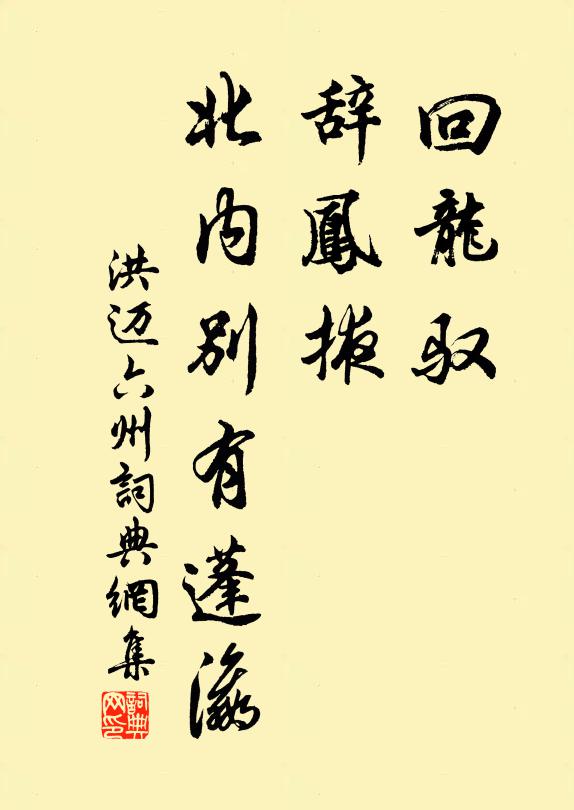 回龍驭
辞鳳掖
北内别有蓬瀛
洪迈六州詞典網集
詞典网印